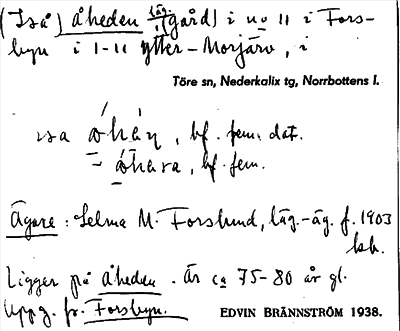 (Iså) åheden läg. (gård) i no 11 i Fors-
byn i 1-11 Ytter-Morjärv, i
Töre sn, Nederkalix tg, Norrbottens l.
isa åhén, bf. fem. dat.
= åhera, bf. fem.
Ägare: Selma M. Forslund, läg.-äg. f. 1903
Ligger på åheden. Är ca 75-80 år gl.
Uppg. fr. Forsbyn. EDVIN BRÄNNSTRÖM 1938.